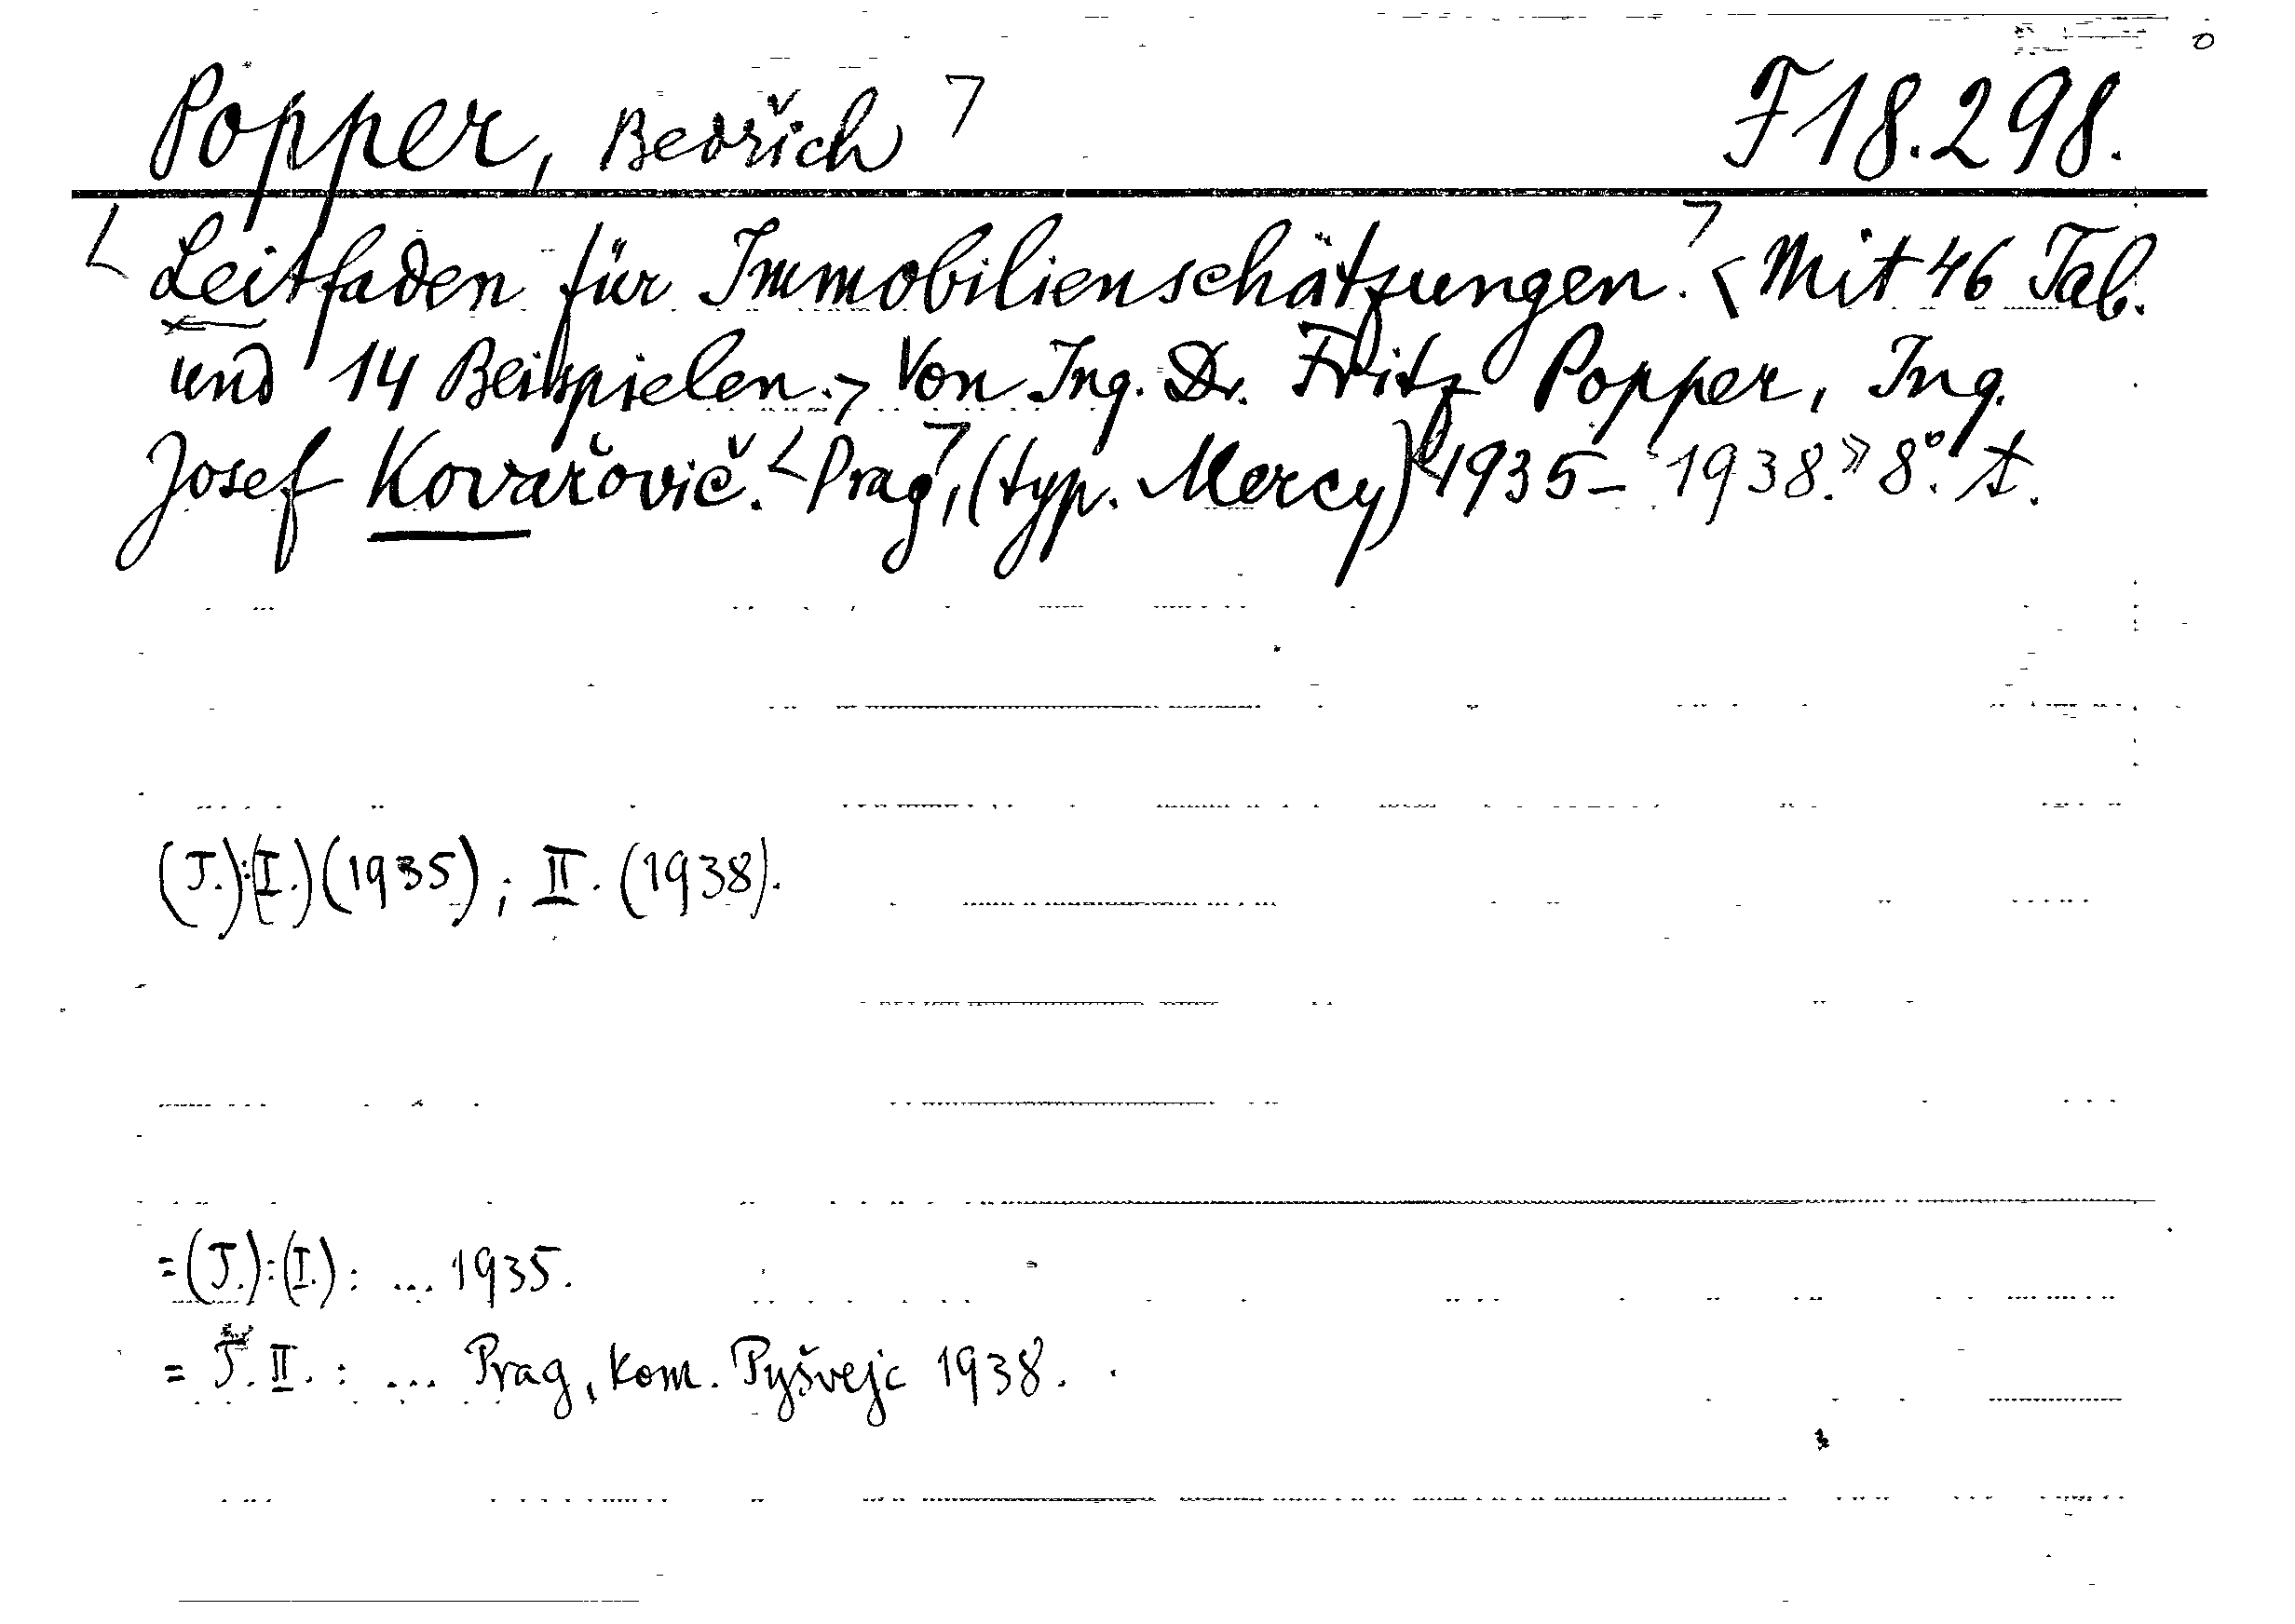 Popper, Bedřich ㄱ F 18.298.
< Leitfaden für Immobilienschätzungen. ㄱ < Mit 46 Tab.
und 14 Beispielen. > Von Ing. Dr. Fritz Popper, Ing.
Josef Kovařovič. < Prag ㄱ, (typ. Mercy) « 1935 - 1938. » 8°.
(T.):(I.) (1935); II. (1938).
= (T.):(I.): ... 1935.
= T. II.: ... Prag, Kom. Pyšvejc 1938.